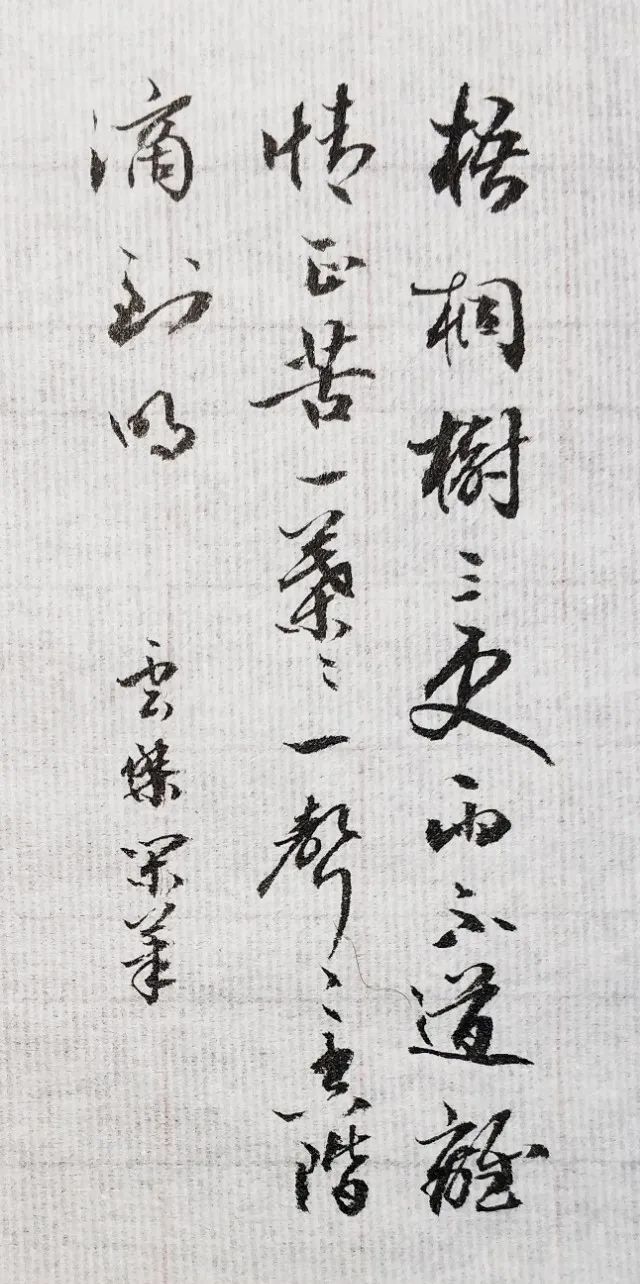 梧桐樹三更雨不道離
情正苦一葉〻一聲〻空階
滴到明
雲燊閑筆